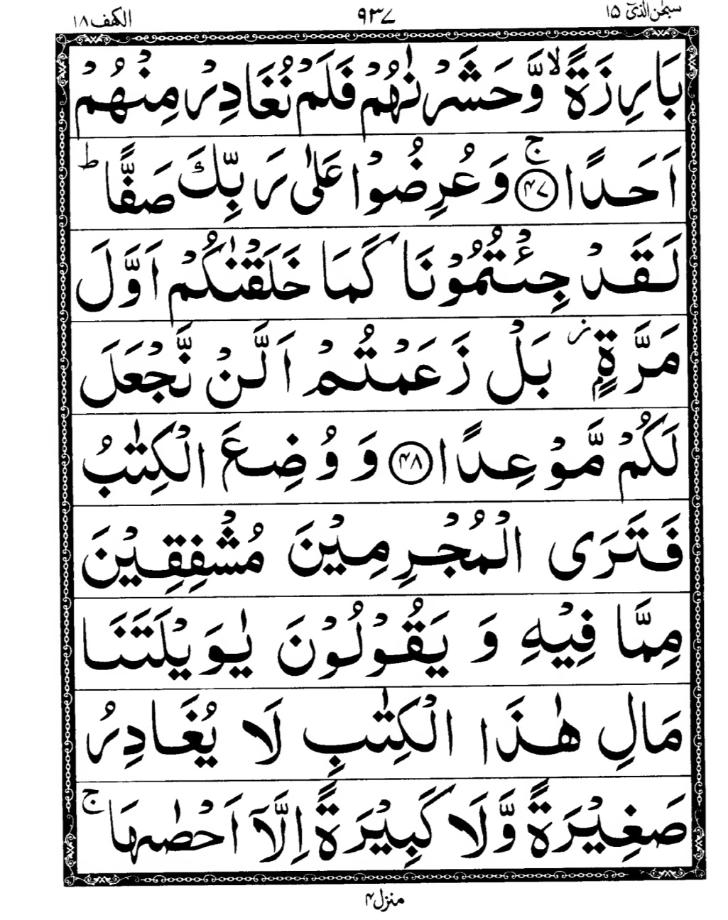 سبحٰن الذی ۱۵ ۹۳۷ الکهف ۱۸
بَارِزَةً ۙ وَّحَشَرْنٰهُمْ فَلَمْ نُغَادِرْ مِنْهُمْ
اَحَدًا ۚ ﴿۴۷﴾ وَ عُرِضُوْا عَلٰی رَبِّكَ صَفًّا ؕ
لَقَدْ جِئْتُمُوْنَا كَمَا خَلَقْنٰكُمْ اَوَّلَ
مَرَّةٍۭ ؗ بَلْ زَعَمْتُمْ اَلَّنْ نَّجْعَلَ
لَكُمْ مَّوْعِدًا ﴿۴۸﴾ وَ وُضِعَ الْكِتٰبُ
فَتَرَی الْمُجْرِمِیْنَ مُشْفِقِیْنَ
مِمَّا فِیْهِ وَ یَقُوْلُوْنَ یٰوَیْلَتَنَا
مَالِ هٰذَا الْكِتٰبِ لَا یُغَادِرُ
صَغِیْرَةً وَّلَا كَبِیْرَةً اِلَّاۤ اَحْصٰىهَا ۚ
منزل ۴